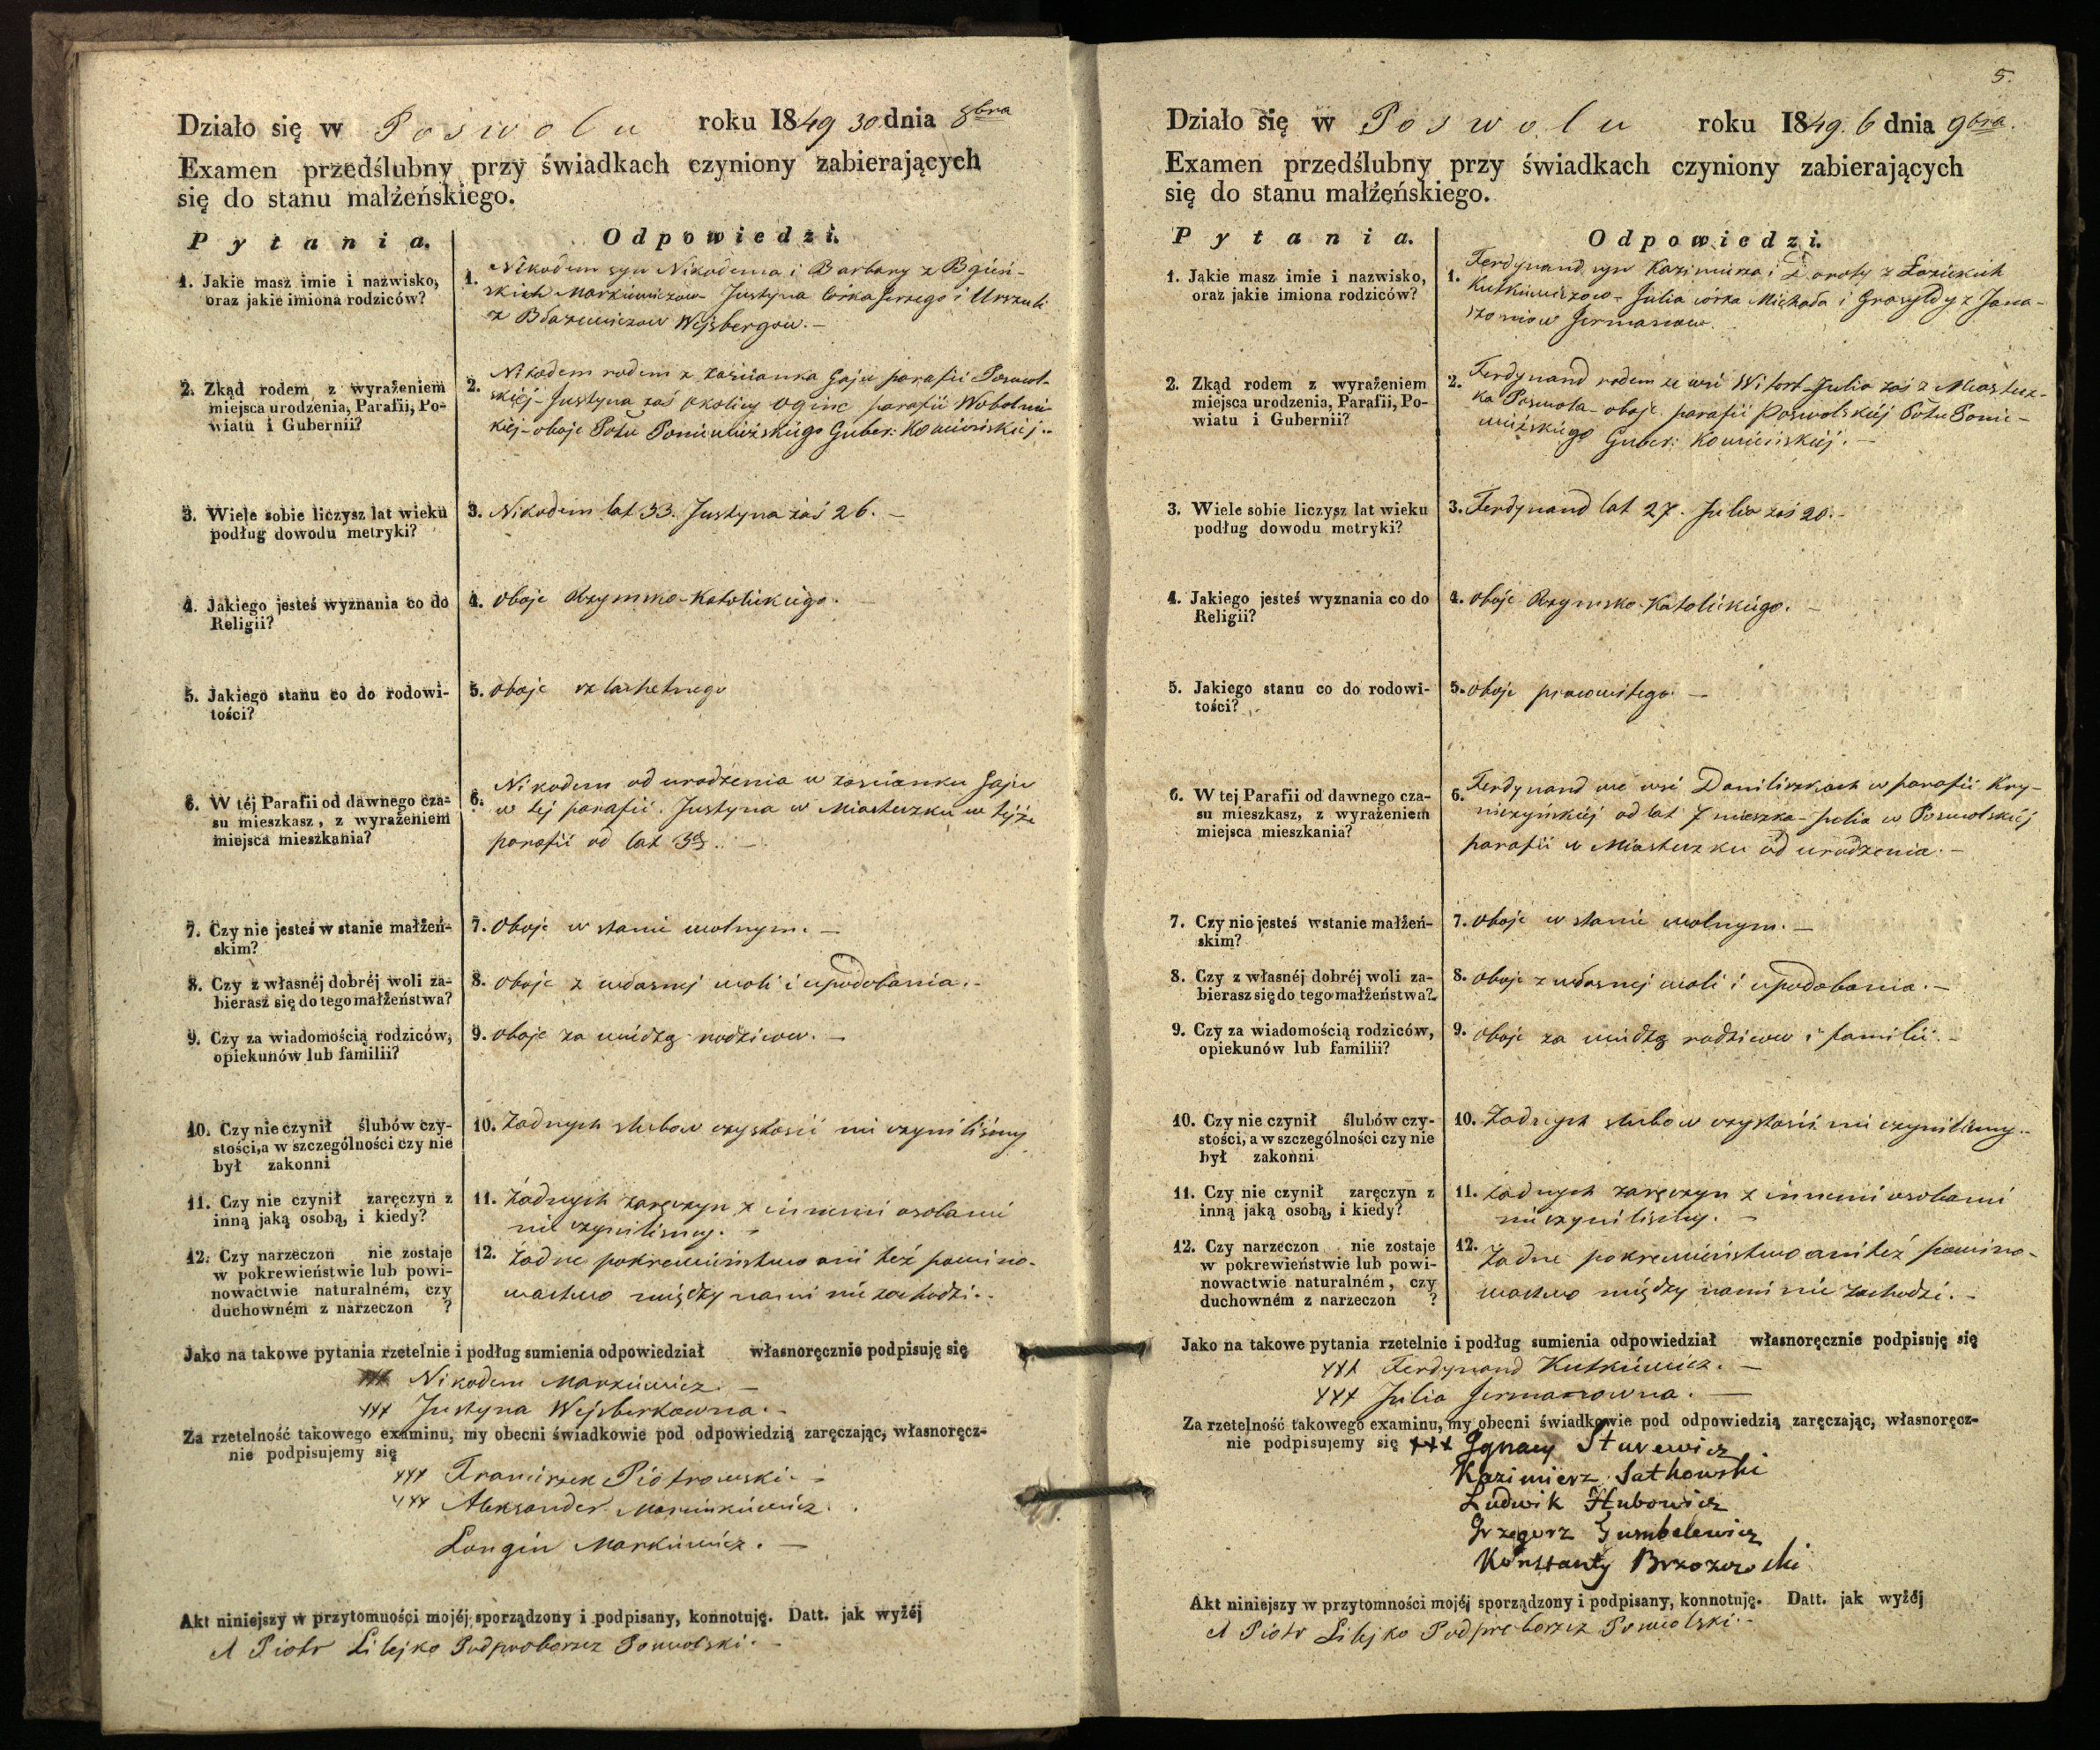 Działo się w Poswolu roku 1849 30 dnia 8bra
Examen przedślubny przy świadkach czyniony zabierających
się do stanu małżeńskiego.
Pytania. Odpowiedzi.
1. Jakie masz imie i nazwisko,
oraz jakie imiona rodziców?
1. Nikodem syn Nikodema i Barbary z Bgień-
skich Markiewiczow- Justyna córka Jerzego i Urszuli
z Błażewiczow Wejsbergow.-
2. Zkąd rodem z wyrażeniem
miejsca urodzenia, Parafii, Po-
wiatu i Gubernii?
2. Nikodem rodem z zascianka Gaju parafii Poswol-
skiéj- Justyna zaś okolicy Oginc parafii Wobolni-
kiéj- oboje Pottu Poniewiéżskiégo Guber: Kowieńskiéj.-
3. Wiele sobie liczysz lat wieku
podług dowodu metryki?
3. Nikodem lat 33. Justyna zaś 26. -
4. Jakiego jesteś wyznania co do
Religii?
4. Oboje Rzymsko-Katolickiego. -
5. Jakiego stanu co do rodowi-
tości?
5. Oboje szlachetnego
6. W téj Parafii od dawnego cza-
su mieszkasz, z wyrażeniem
miejsca mieszkania?
6. Nikodem od urodzenia w zascianku Gaju
w tej parafii. Justyna w Miasteczku w téjże
parafii od lat
7. Czy nie jesteś w stanie małżeń-
skim?
7. Oboje w stanie wolnym. -
8. Czy z własnéj dobréj woli za-
bierasz się do tego małżeństwa?
8. Oboje z własnej woli i upodobania.-
9. Czy za wiadomością rodziców,
opiekunów lub familii?
9. Oboje za wiédzą rodzicow. -
10. Czy nie czynił ślubów czy-
stości, a w szczególności czy nie
był zakonni
10. Żadnych slubow czystosci nie czynilismy
11. Czy nie czynił zaręczyn z
inną jaką osobą, i kiedy?
11. Żadnych zaręczyn z innemi osobami
nie czynilismy. -
12. Czy narzeczon nie zostaje
w pokrewieństwie lub powi-
nowactwie naturalném, czy
duchowném z narzeczon ?
12. Żadne pokrewieństwo ani też powino-
wactwo między nami nie zachodzi.-
Jako na takowe pytania rzetelnie i podług sumienia odpowiedział własnoręcznie podpisuję się
+++ Nikodem Markiewicz. -
+++ Justyna Wejsberkowna.-
Za rzetelność takowego examinu, my obecni świadkowie pod odpowiedzią zaręczając, własnoręcz-
nie podpisujemy się
+++ Franciszek Piotrowski.-
+++ Aleksander Marcinkiewicz.
Longin Markiewicz. -
Akt niniejszy w przytomności mojéj sporządzony i podpisany, konnotuję. Datt. jak wyżéj
X Piotr Libejko Podproboszcz Poswolski.-
5.
Działo się w Poswolu roku 1849. 6 dnia 9bra.
Examen przedślubny przy świadkach czyniony zabierających
się do stanu małżeńskiego.
Pytania. Odpowiedzi.
1. Jakie masz imie i nazwisko,
oraz jakie imiona rodziców?
1. Ferdynand syn Kazimierza i Doroty z Łozickich
Kutkiewiczow- Julia córka Michała i Grasyldy z Jana-
szoniow Jermanow.
2. Zkąd rodem z wyrażeniem
miejsca urodzenia, Parafii, Po-
wiatu i Gubernii?
2. Ferdynand rodem ze wsi Witort- Julia zaś z Miastecz-
ka Poswola- oboje parafii Poswolskiéj Pottu Ponie-
wiéżskiégo Guber: Kowieńskiéj. -
3. Wiele sobie liczysz lat wieku
podług dowodu metryki?
3. Ferdynand lat 27. Julia zaś 20.-
4. Jakiego jesteś wyznania co do
Religii?
4. Oboje Rzymsko-Katolickiégo. -
5. Jakiego stanu co do rodowi-
tości?
5. Oboje pracowitego. -
6. W tej Parafii od dawnego cza-
su mieszkasz, z wyrażeniem
miejsca mieszkania?
6. Ferdynand we wsi Daniliszkach w parafii Kry-
niczyńskiéj od lat 7 mieszka- Julia w Poswolskiéj
parafii w Miasteczku od urodzenia.-
7. Czy nie jesteś wstanie małżeń-
skim?
7. Oboje w stanie wolnym. -
8. Czy z własnéj dobréj woli za-
bierasz się do tego małżeństwa?
8. Oboje z własnej woli i upodobania. -
9. Czy za wiadomością rodziców,
opiekunów lub familii?
9. Oboje za wiédzą rodzicow i familii.-
10. Czy nie czynił ślubów czy-
stości, a w szczególności czy nie
był zakonni
10. Żadnych slubow czystosci nie czynilismy.-
11. Czy nie czynił zaręczyn z
inną jaką osobą, i kiedy?
11. Żadnych zaręczyn z innemi osobami
nie czynilismy. -
12. Czy narzeczon nie zostaje
w pokrewieństwie lub powi-
nowactwie naturalném, czy
duchowném z narzeczon ?
12. Żadne pokrewieństwo ani też powino-
wactwo między nami nie zachodzi.-
Jako na takowe pytania rzetelnie i podług sumienia odpowiedział własnoręcznie podpisuję się
+++ Ferdynand Kutkiewicz. -
+++ Julia Jermanowna. -
Za rzetelność takowego examinu, my obecni świadkowie pod odpowiedzią zaręczając, własnoręcz-
nie podpisujemy się +++ Ignacy Sturewicz
Kazimierz Satkowski
Ludwik Hubowicz
Grzegorz Gumbelewicz
Konstanty Brzozowski
Akt niniejszy w przytomności mojéj sporządzony i podpisany, konnotuję. Datt. jak wyżéj
X Piotr Libejko Podproboszcz Poswolski.-